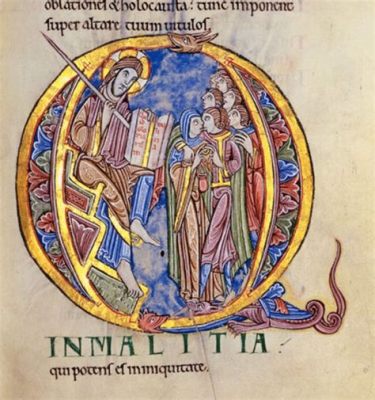 oblationes & holocausta: tunc imponent
super altare tuum uitulos.
Q
IN MALITIA
qui potens es in iniquitate.